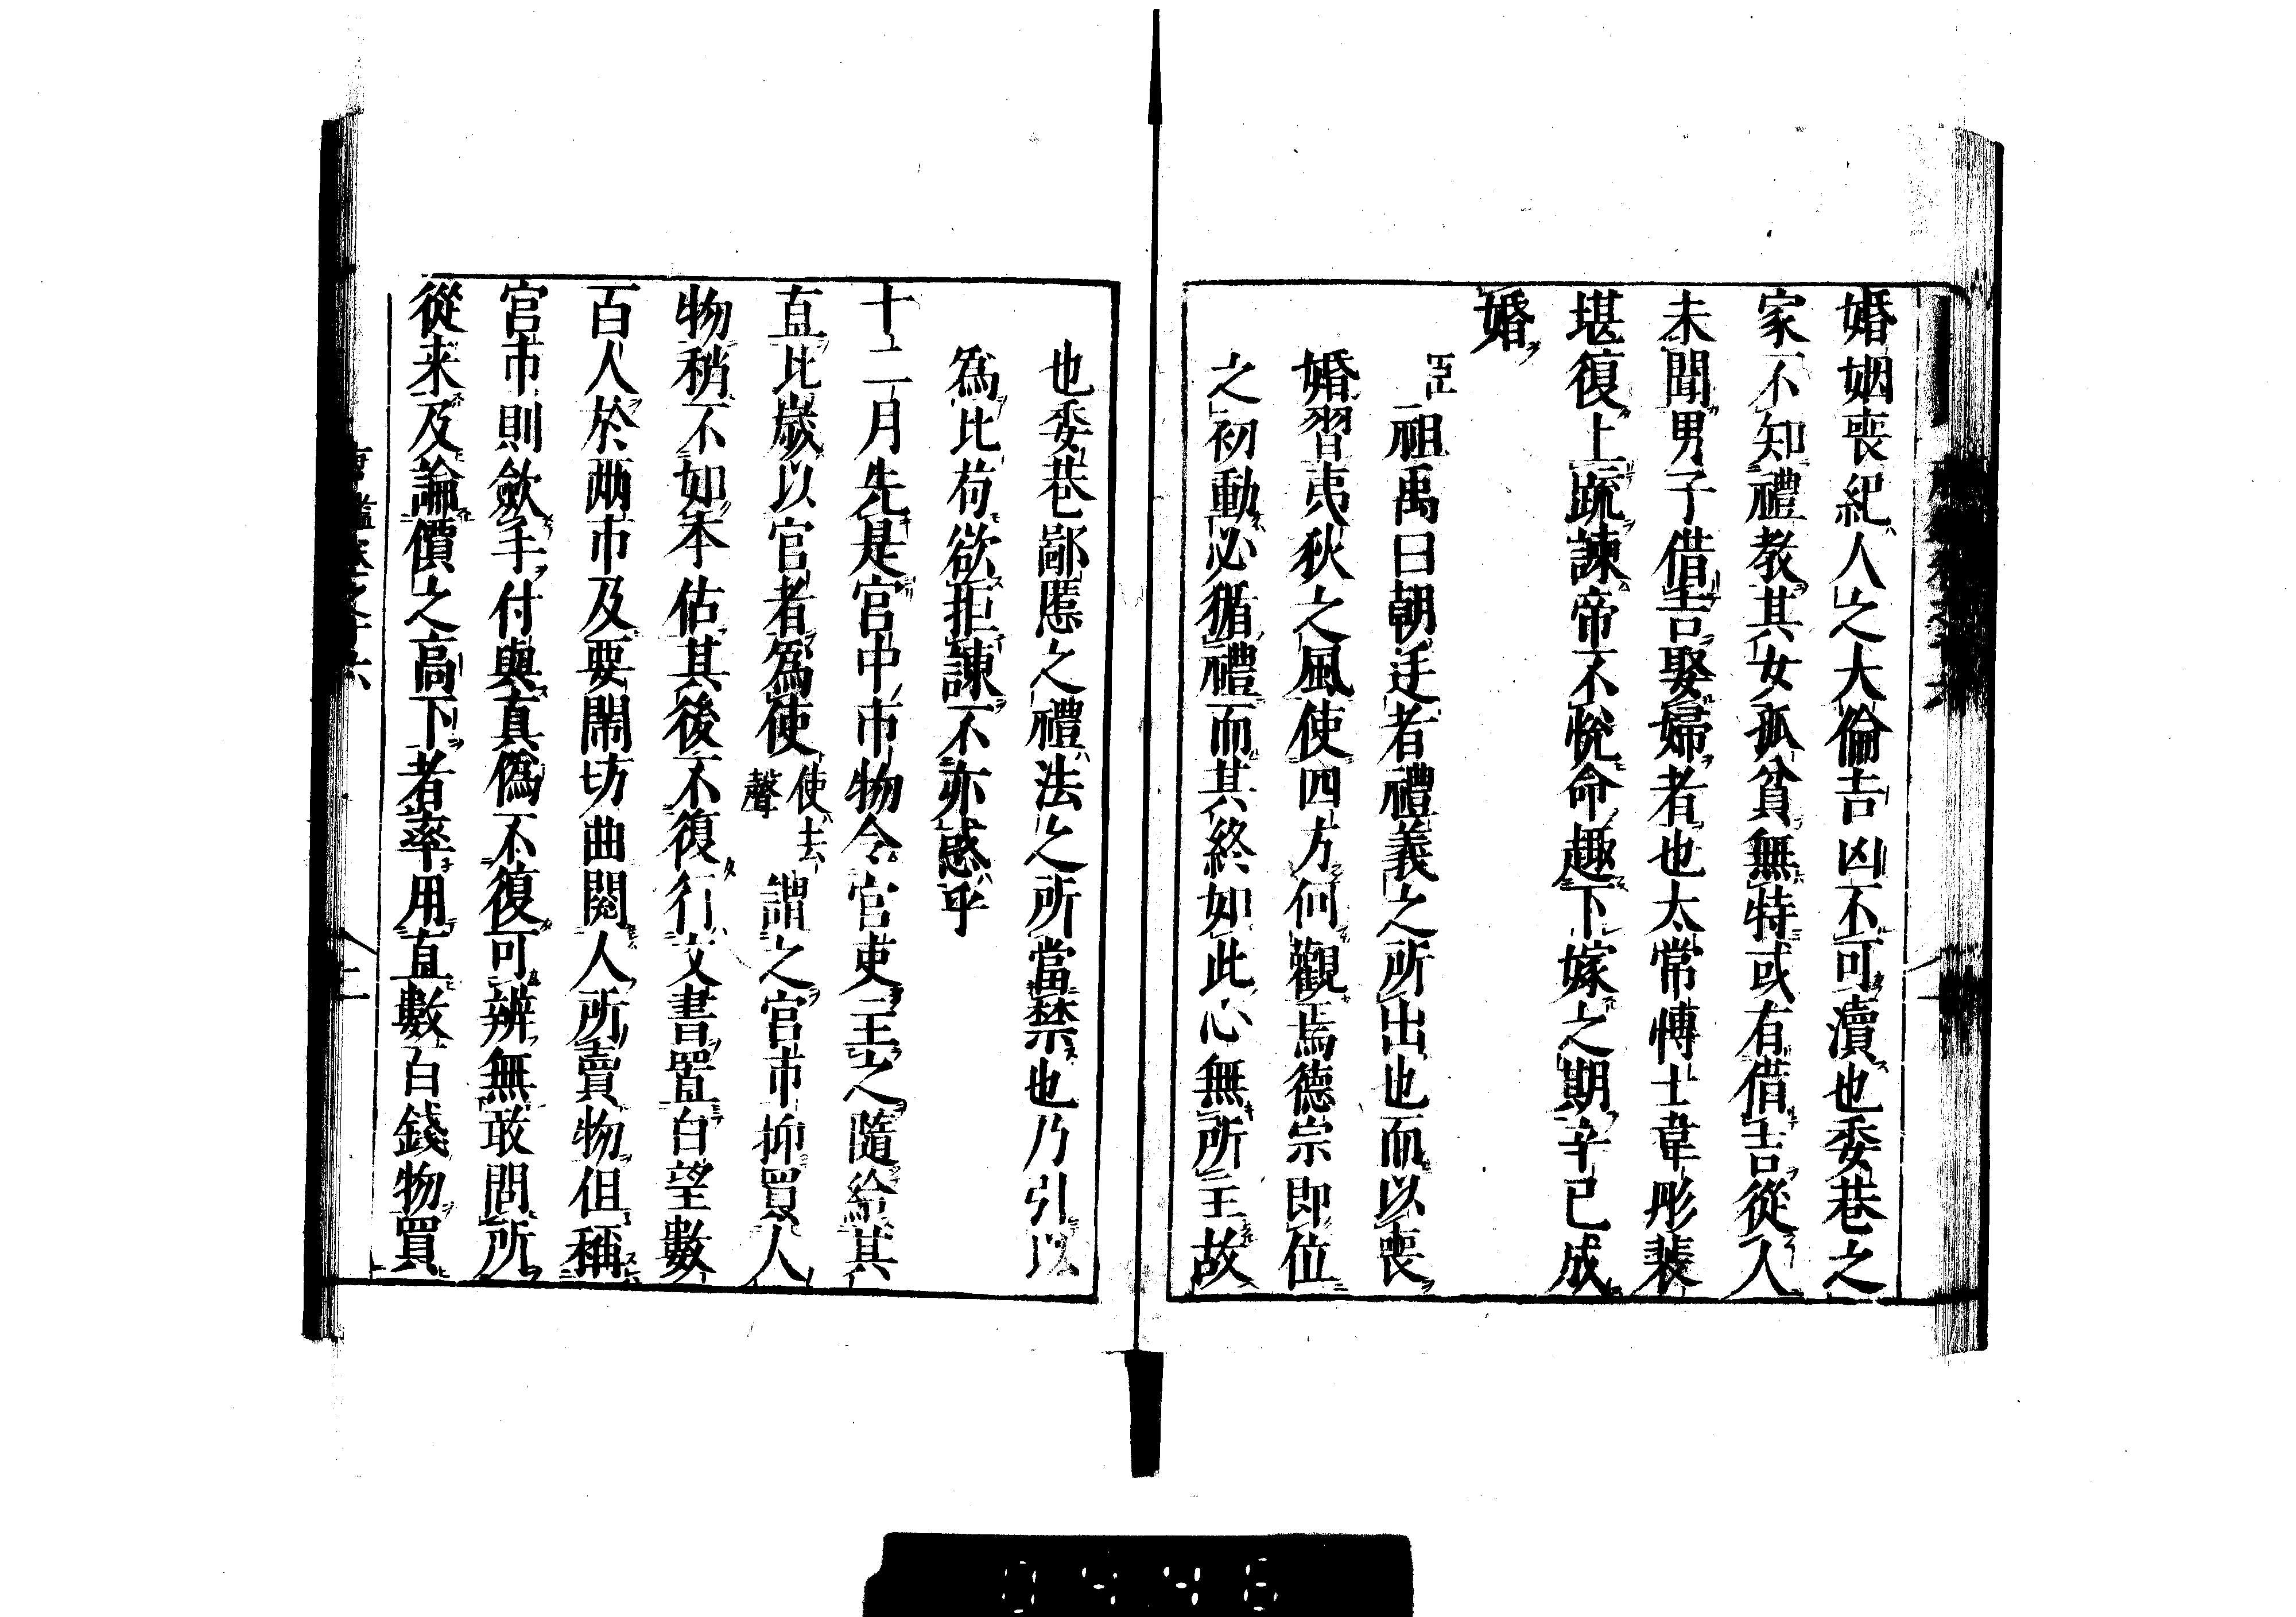 婚姻喪紀人之大倫吉凶不可瀆也委巷之
家不知禮教其女孤貧無恃或有借吉從人
未聞男子借吉娶婦者也太常博士韋彤裴
堪復上疏諫帝不悅命趣下嫁之期辛巳成
婚
臣祖禹曰朝廷者禮義之所出也而以喪
婚習夷狄之風使四方何觀焉德宗即位
之初動必循禮而其終如此心無所主故
也委巷鄙慝之禮法之所當禁也乃引以
爲比苟欲拒諫不亦惑乎
十二月先是宮中市物令官吏主之隨給其
直比歲以宦者爲使使去聲謂之宮市抑買人
物稍不如本估其後不復行文書置白望數
百人於兩市及要鬧坊曲閱人所賣物但稱
宮市則斂手付與真僞不復可辨無敢問所
從来及論價之高下者率用直數百錢物買
唐鑑卷之十六
二